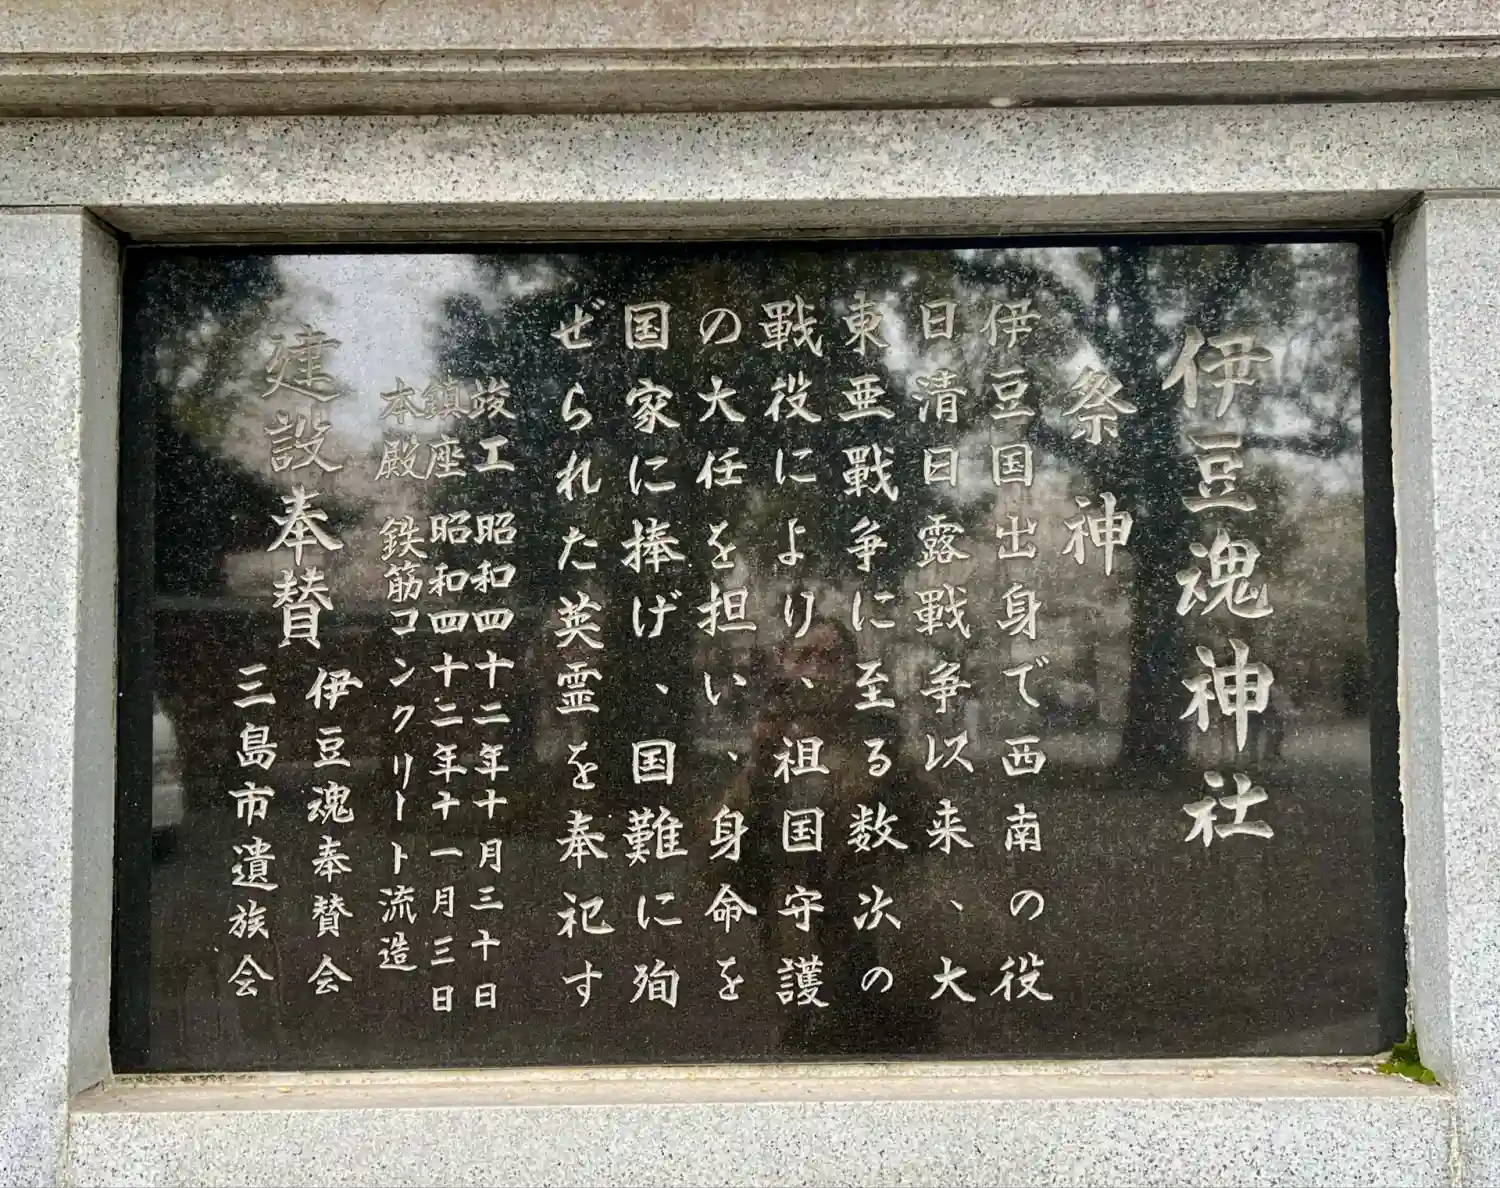 伊豆魂神社
祭神
伊豆国出身で西南の役
日清日露戦争以来、大
東亜戦争に至る数次の
戦役により、祖国守護
の大任を担い、身命を
国家に捧げ、国難に殉
ぜられた英霊を奉祀す
竣工 昭和四十二年十月三十日
鎮座 昭和四十二年十一月三日
本殿 鉄筋コンクリート流造
建設奉賛
伊豆魂奉賛会
三島市遺族会